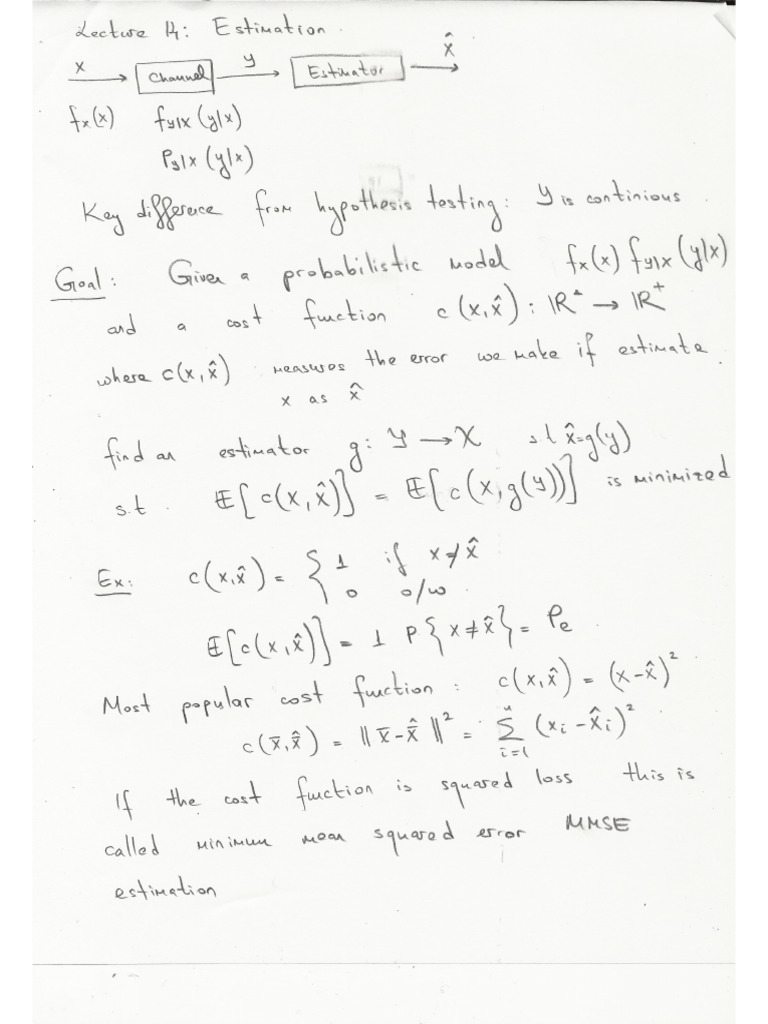 Lecture 14: Estimation.
x → Channel y → Estimator → x̂
fx(x) fy|x (y|x)
Py|x (y|x)
Key difference from hypothesis testing: y is continious.
Goal: Given a probabilistic model fx(x) fy|x (y|x)
and a cost function c(x,x̂): ℝ² → ℝ⁺
where c(x,x̂) measures the error we make if estimate
x as x̂
find an estimator g: Y → X s.t x̂=g(y)
s.t. E[c(x,x̂)] = E[c(x,g(y))] is minimized
Ex: c(x,x̂) = { 1 if x≠x̂
0 o/w.
E[c(x,x̂)] = 1 P{x≠x̂} = Pe.
Most popular cost function: c(x,x̂) = (x-x̂)²
c(x̄,x̄̂) = ||x̄-x̄̂||² = Σ_{i=1}^{n} (xi-x̂i)²
If the cost function is squared loss this is
called minimum mean squared error MMSE
estimation